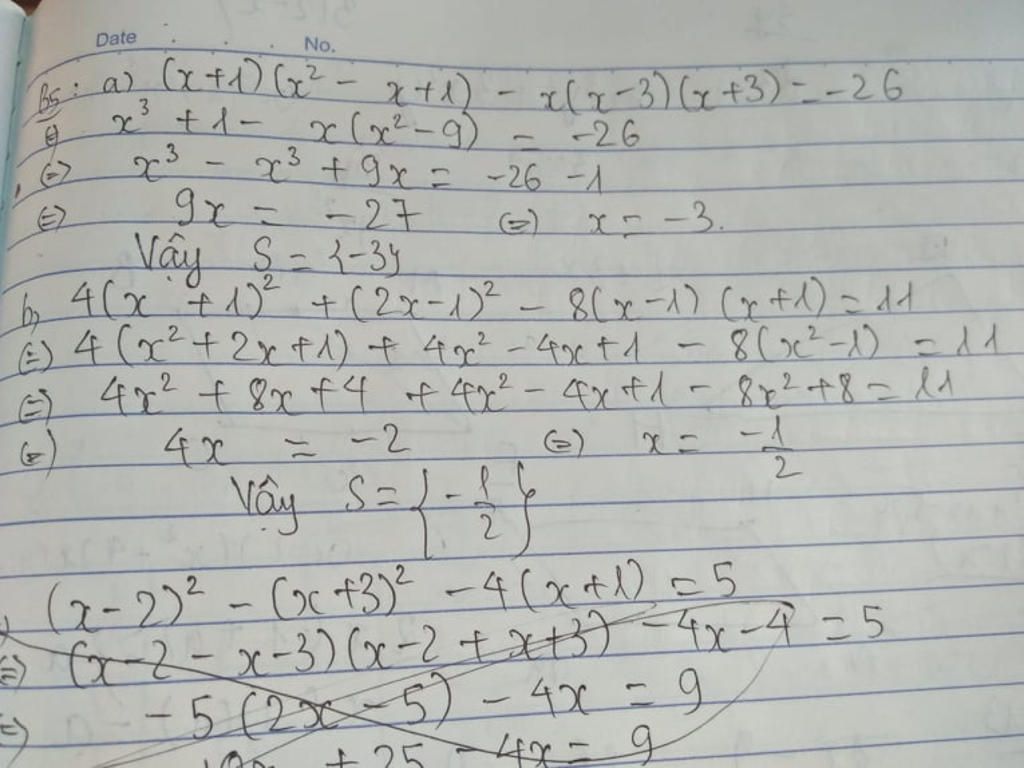 Date No.
B5: a) (x+1)(x² - x+1) - x(x-3)(x+3) = -26
⇔ x³ + 1 - x(x²-9) = -26
⇔ x³ - x³ + 9x = -26 -1
⇔ 9x = -27 ⇔ x = -3.
Vậy S = {-3}
b, 4(x +1)² + (2x-1)² - 8(x-1)(x+1) = 11
⇔ 4(x² + 2x+1) + 4x² - 4x+1 - 8(x²-1) = 11
⇔ 4x² + 8x+4 + 4x² - 4x+1 - 8x² +8 = 11
⇔ 4x = -2 ⇔ x = -1/2
Vậy S = {-1/2}
(x-2)² - (x+3)² - 4(x+1) = 5
⇔ (x-2 - x-3)(x-2 + x+3) - 4x-4 = 5
⇔ -5(2x-5) - 4x = 9
+ 25 - 4x = 9